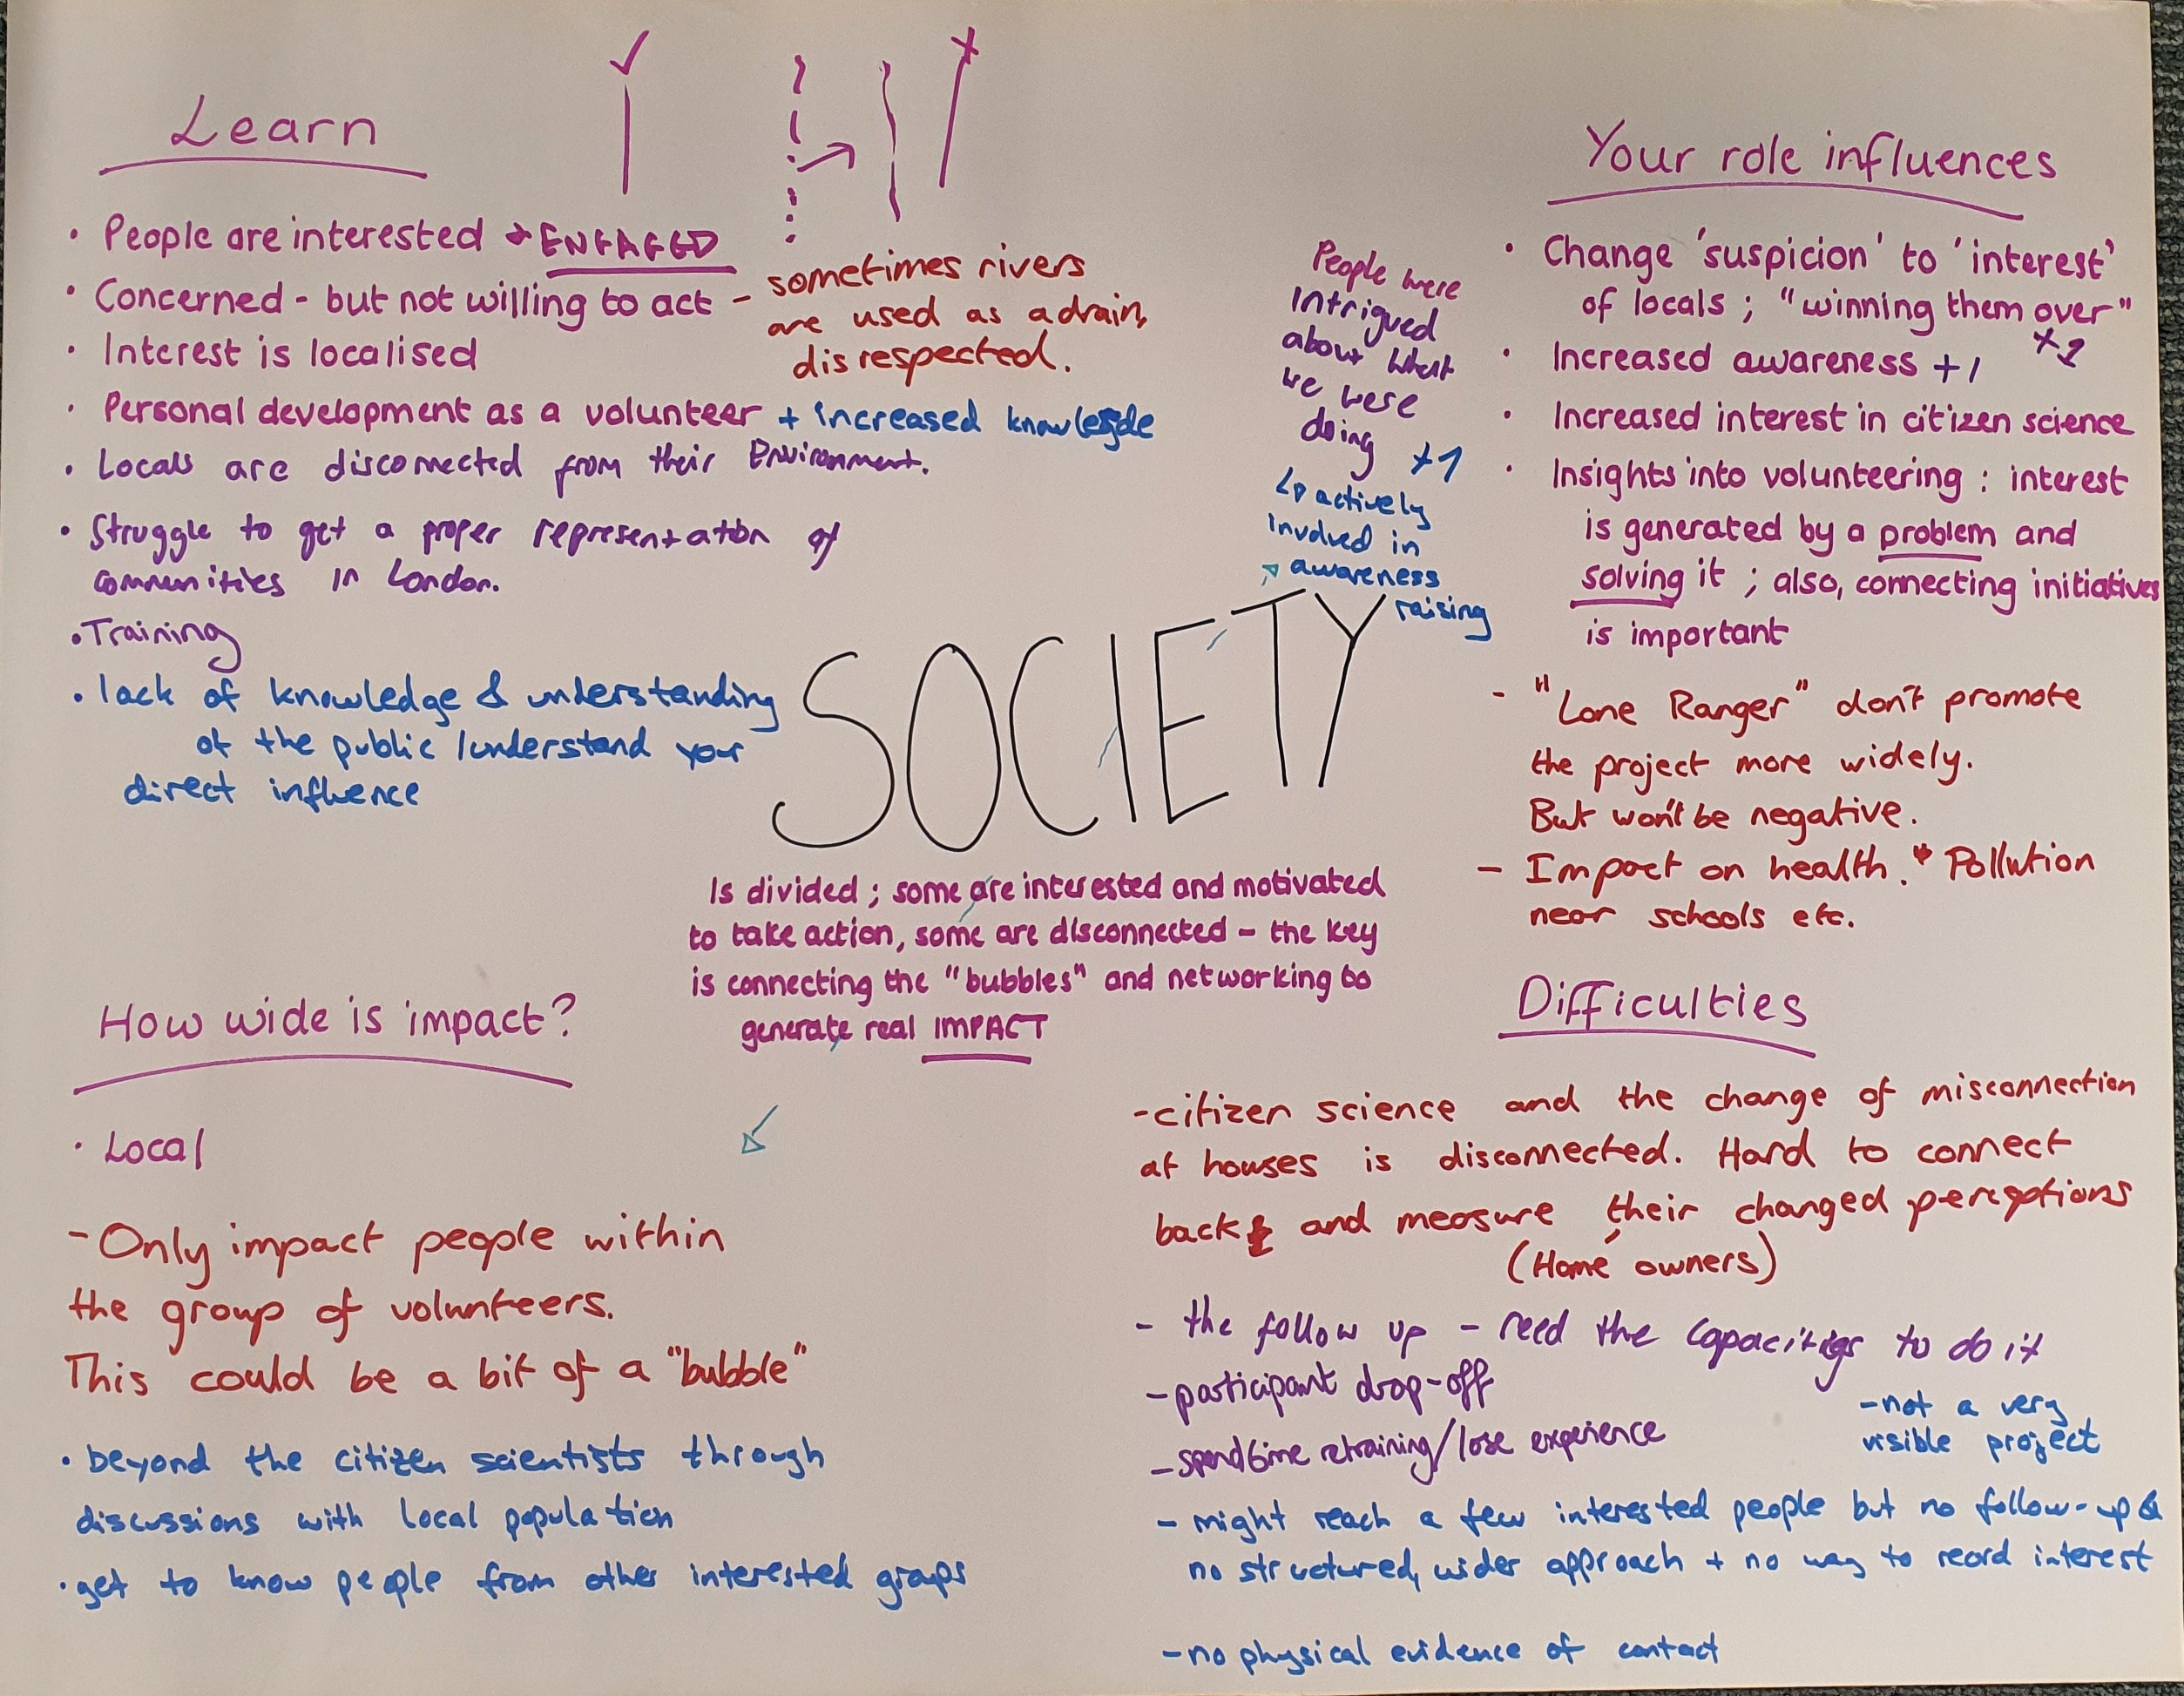 Learn
• People are interested → ENGAGED
• Concerned - but not willing to act - sometimes rivers
are used as a drain,
disrespected.
• Interest is localised
• Personal development as a volunteer + increased knowledge
• Locals are disconnected from their Environment.
• Struggle to get a proper representation of
communities in London.
• Training
• lack of knowledge & understanding
of the public / understand your
direct influence
People were
intrigued
about what
we were
doing +1
↳ actively
involved in
awareness
raising
Your role influences
• Change 'suspicion' to 'interest'
of locals ; "winning them over"
• Increased awareness +1
• Increased interest in citizen science
• Insights into volunteering : interest
is generated by a problem and
solving it ; also, connecting initiatives
is important
- "Lone Ranger" don't promote
the project more widely.
But won't be negative.
- Impact on health. Pollution
near schools etc.
SOCIETY
Is divided ; some are interested and motivated
to take action, some are disconnected - the key
is connecting the "bubbles" and networking to
generate real IMPACT
How wide is impact?
• Local
- Only impact people within
the group of volunteers.
This could be a bit of a "bubble"
• beyond the citizen scientists through
discussions with local population
• get to know people from other interested groups
Difficulties
- citizen science and the change of misconnection
at houses is disconnected. Hard to connect
back and measure their changed perceptions
(Home owners)
- the follow up - need the capacities to do it
- participant drop-off
- spend time retraining/lose experience
- not a very
visible project
- might reach a few interested people but no follow-up &
no structured, wider approach + no way to record interest
- no physical evidence of contact